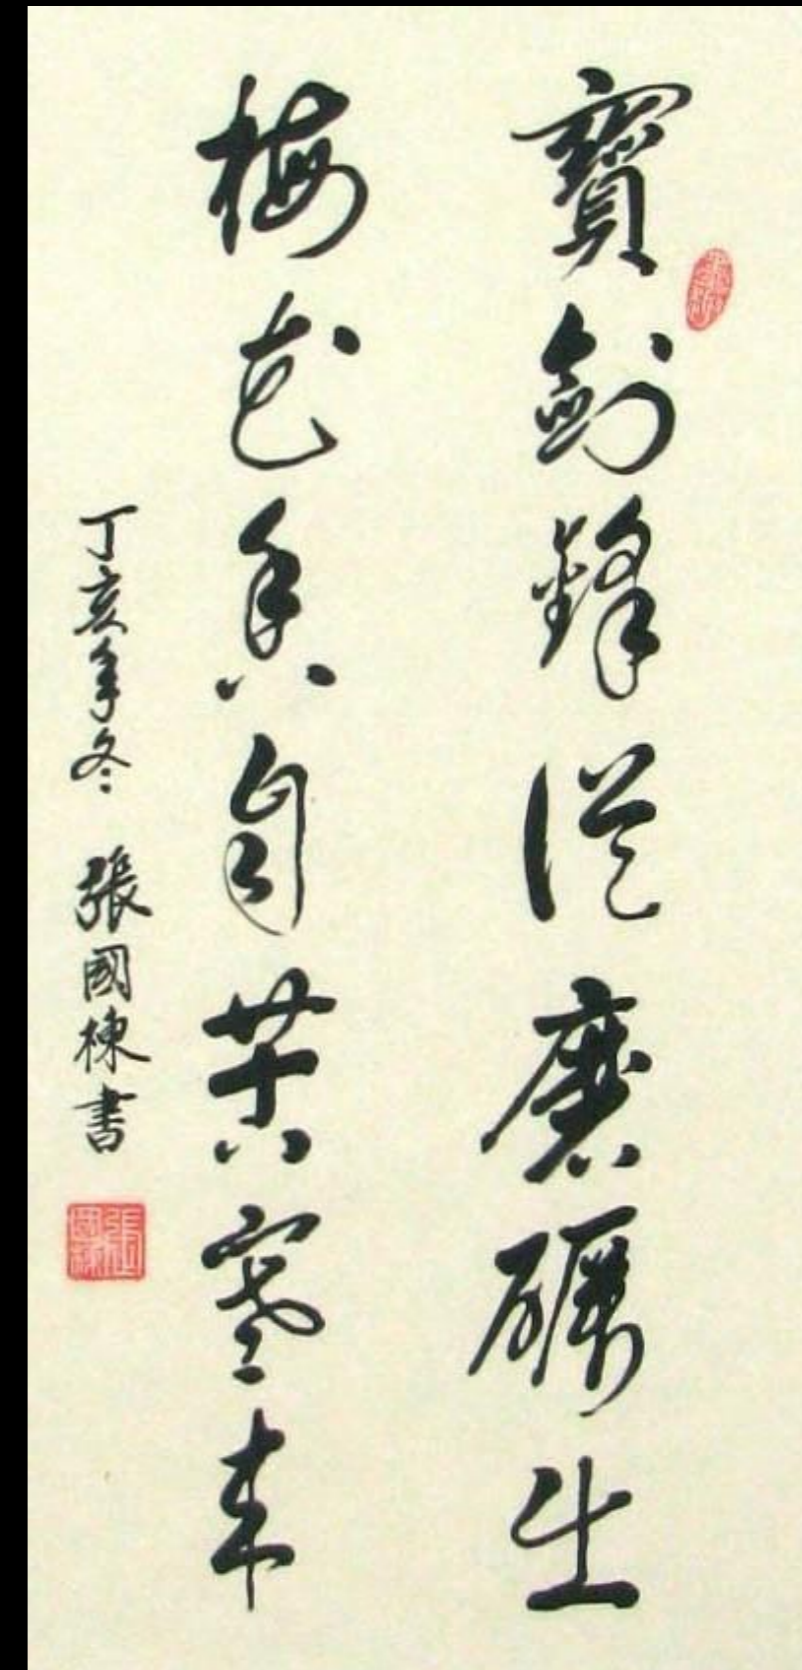 寶劍鋒從磨礪出
梅花香自苦寒来
丁亥年冬 張國棟書